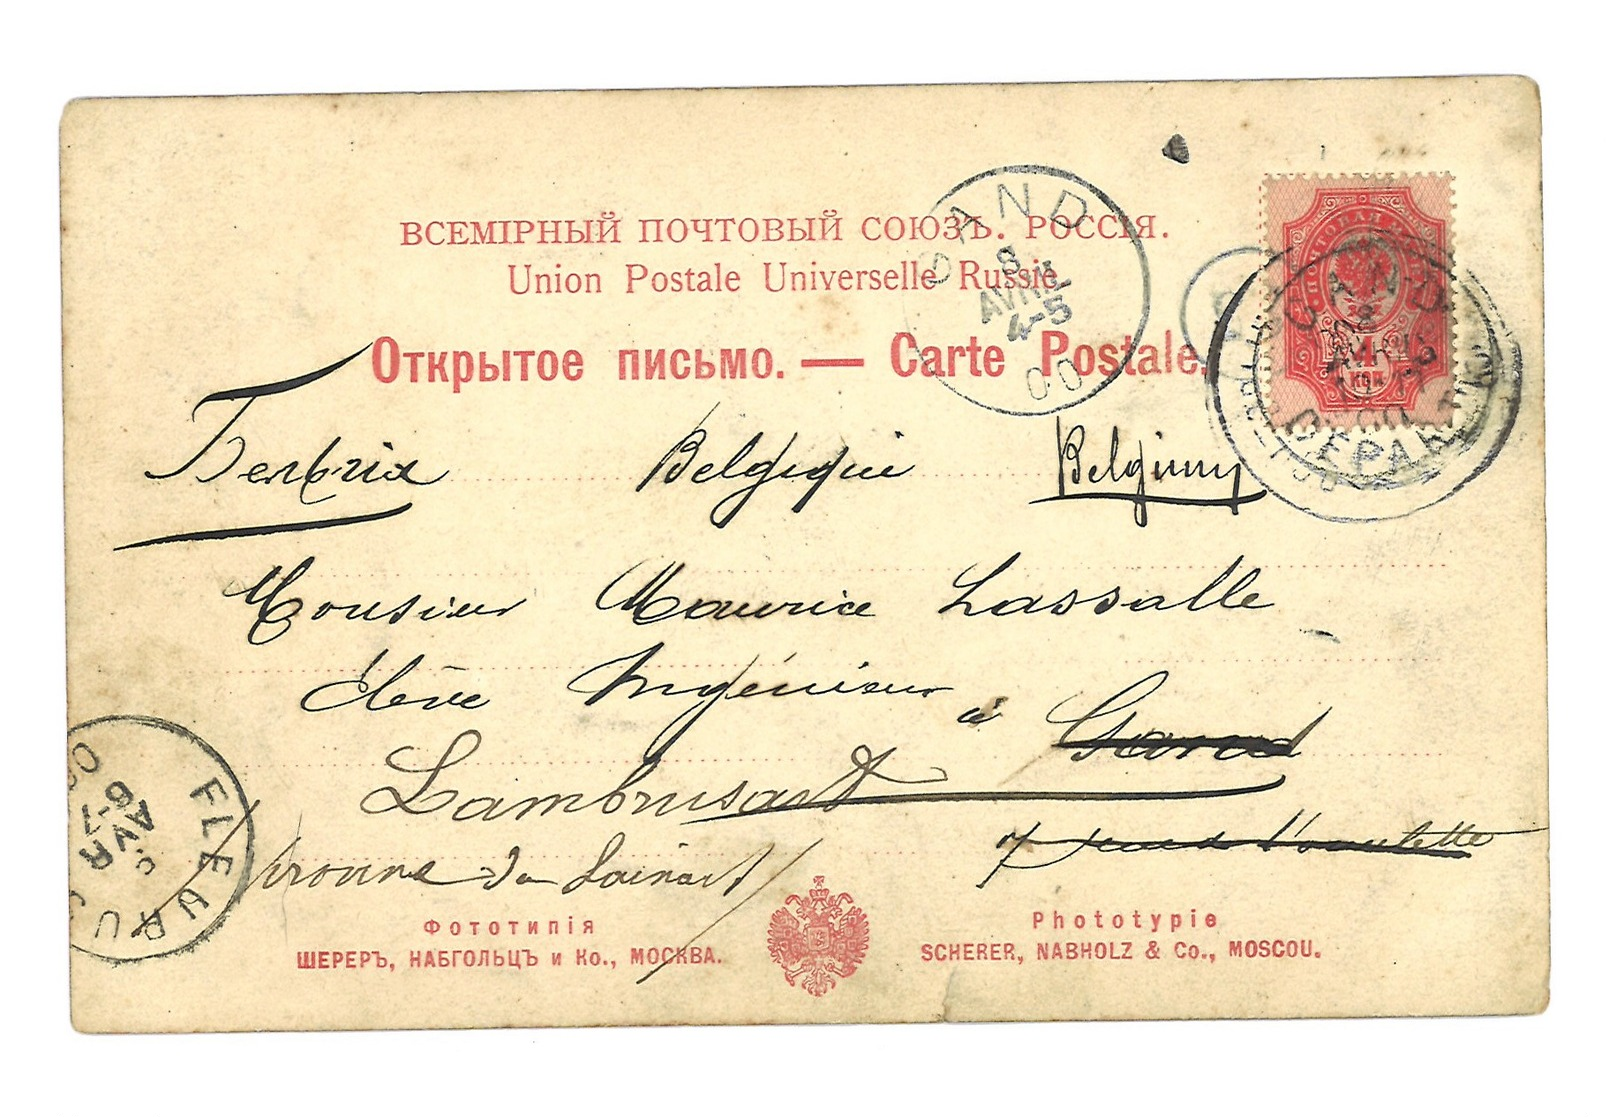 ВСЕМІРНЫЙ ПОЧТОВЫЙ СОЮЗЪ. РОССІЯ.
Union Postale Universelle Russie
Открытое письмо. — Carte Postale.
GAND
8
AVRIL
4-5
00
4
КОП
GAND
DEPART
Belgique Belgium
Monsieur Maurice Lassalle
élève Ingénieur à Gand
Lambusart
7
FLEURUS
AVR
6-7
Фототипія
ШЕРЕРЪ, НАБГОЛЬЦЪ и Ко., МОСКВА.
Phototypie
SCHERER, NABHOLZ & Co., MOSCOU.